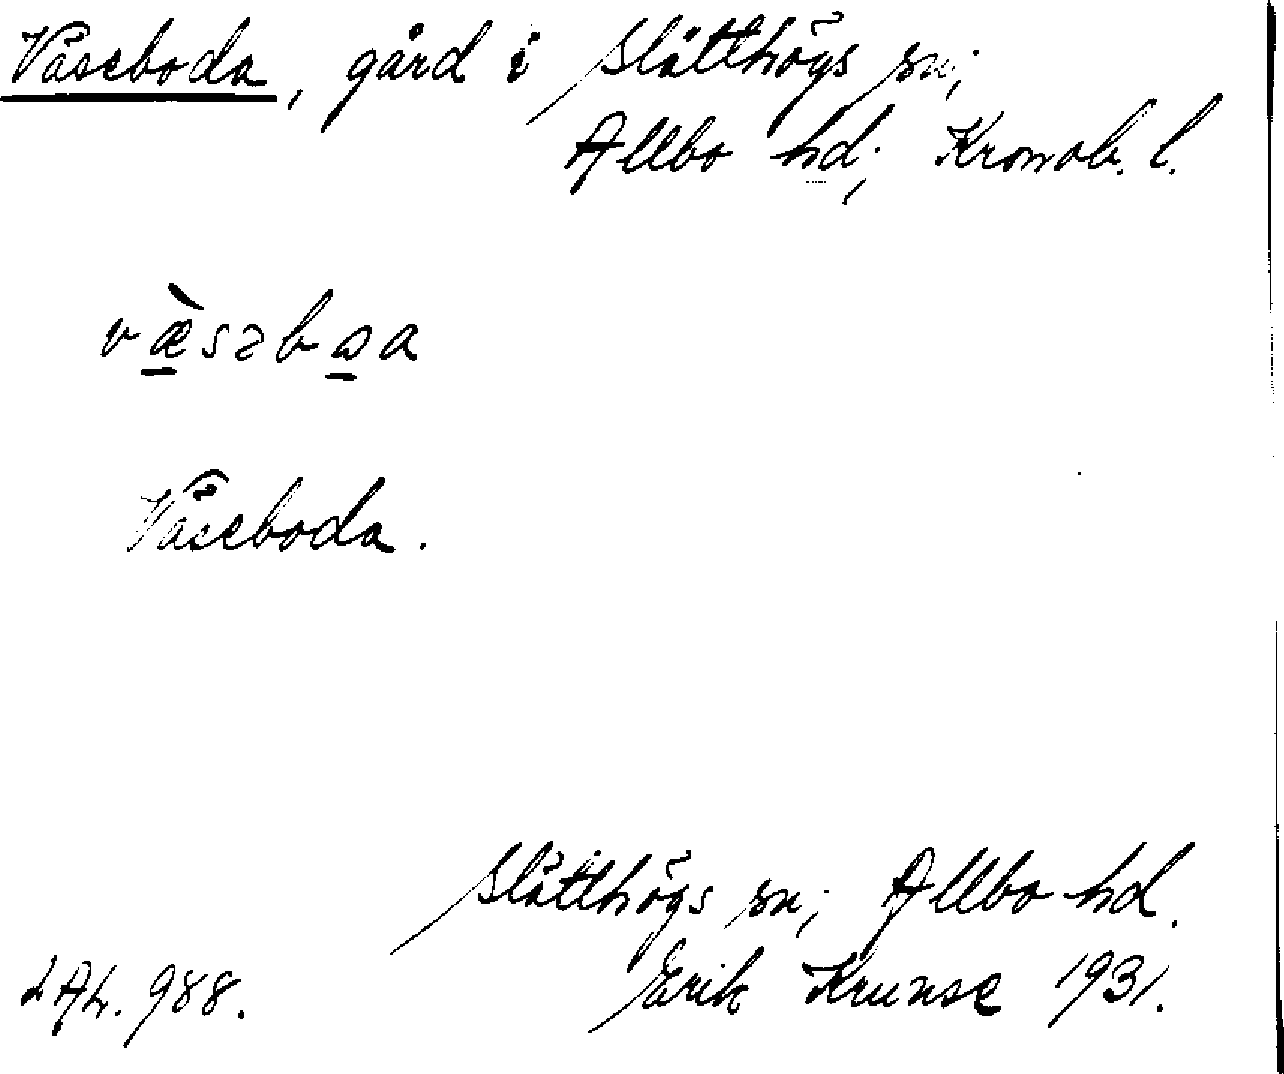 Väseboda, gård i Slätthögs sn;
Allbo hd; Kronob. l.
væ̀səbɷa
Väseboda.
Slätthögs sn; Allbo hd.
LAL. 988. Erik Krunse 1931.